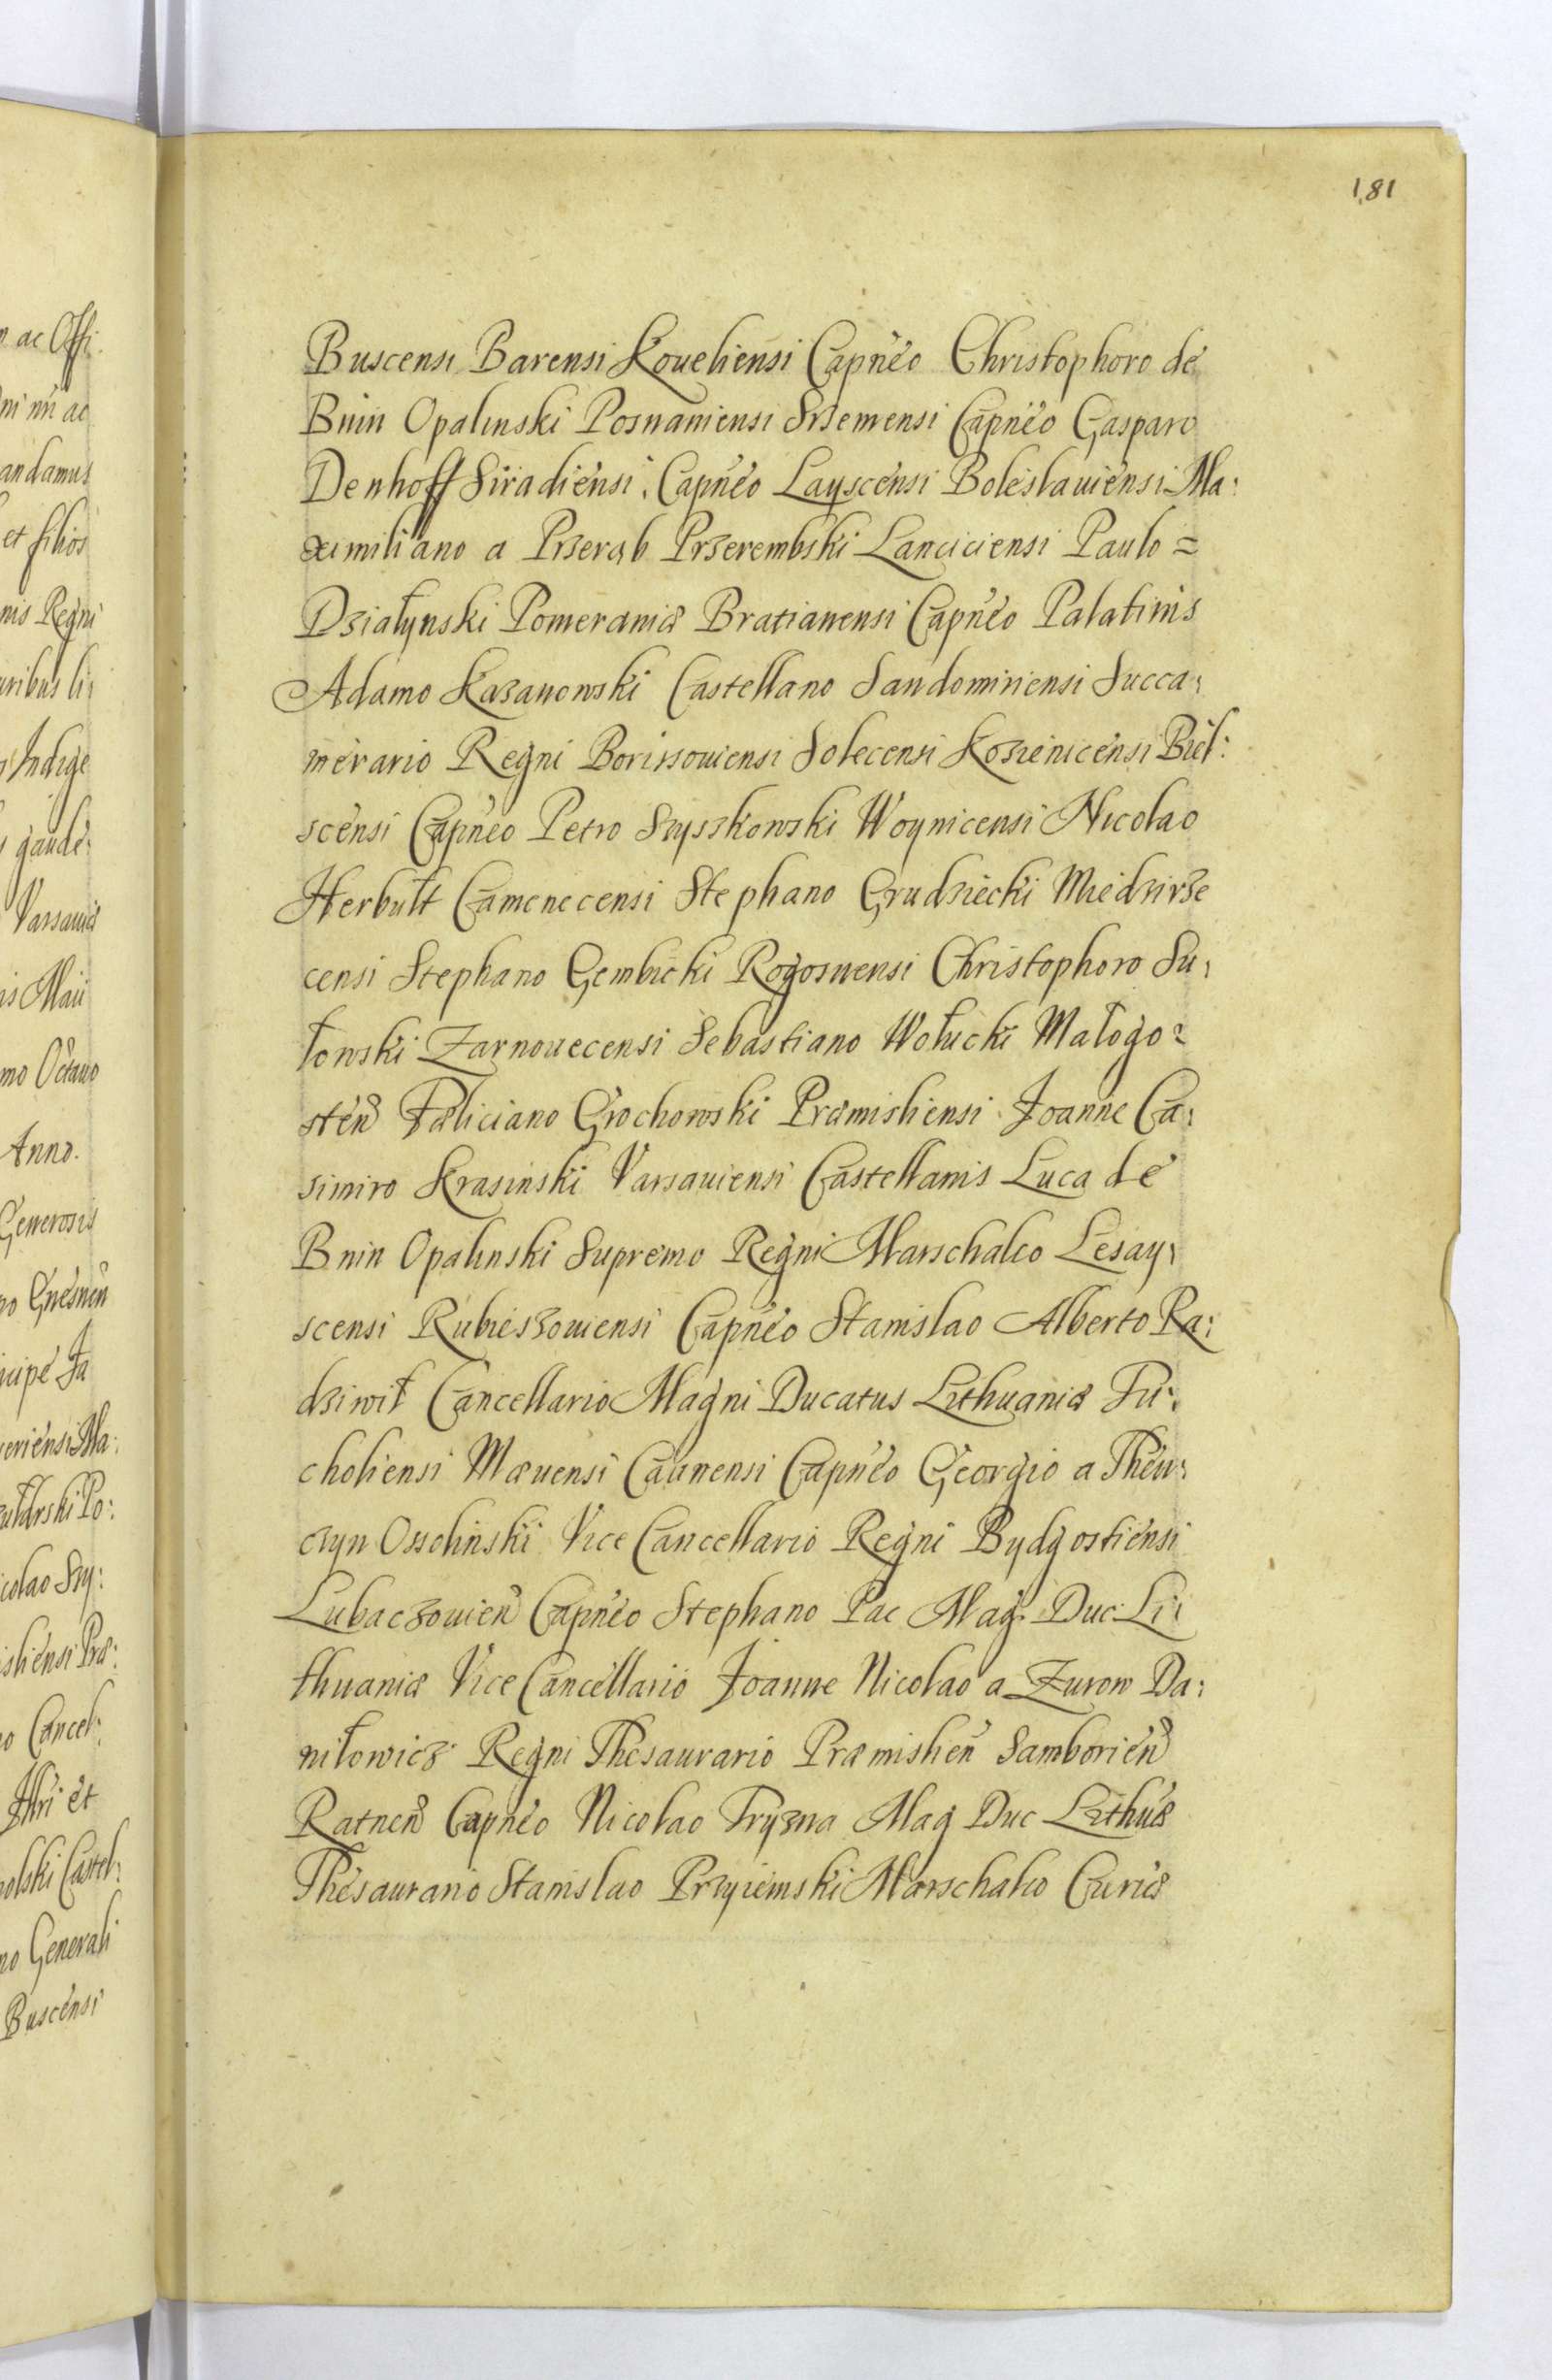 181
n ac Offi:
ni nn̄ ac
andamus
et filios
nis Regni
uribus li:
Indige
gaude:
Varsauiæ
is Maii
mo Octauo
Anno.
Generosis
no Gnesnen̄
icipe Ja
ueriensi Ma:
Po:
colao Szy:
isliensi Præ:
o Cancel:
Illri et
olski Castel:
no Generali
Buscensi
Buscensi Barensi Koueliensi Capnēo Christophoro de
Bnin Opalinski Posnaniensi Srzemensi Capnēo Gasparo
Denhoff Siradiensi, Capnēo Layscensi Boleslauiensi Ma:
ximiliano a Przerąb Przerembski Lanciciensi Paulo =
Działynski Pomeraniæ Bratianensi Capnēo Palatinis
Adamo Kazanowski Castellano Sandomiriensi Succa:
merario Regni Borissouiensi Solecensi Kozienicensi Biel:
scensi Capnēo Petro Szyszkowski Woynicensi Nicolao
Herbułt Camenecensi Stephano Grudziecki Miedzirze
censi Stephano Gembicki Rogosnensi Christophoro Su:
łowski Zarnouecensi Sebastiano Wołucki Małogo=
sten̄ Fæliciano Grochowski Præmisliensi Joanne Ca:
simiro Krasinski Varsauiensi Castellanis Luca de
Bnin Opalinski Supremo Regni Marschalco Lesay:
scensi Rubieszouiensi Capnēo Stanislao Alberto Ra:
dziwił Cancellario Magni Ducatus Lithuaniæ Tu:
choliensi Mæuensi Caunensi Capnēo Georgio a Thęn:
czyn Ossolinski Vice Cancellario Regni Bydgostiensi
Lubaczouien̄ Capnēo Stephano Pac Mag. Duc: Li:
thuaniæ Vice Cancellario Joanne Nicolao a Zurow Da:
niłowicz Regni Thesaurario Præmislien̄ Samborien̄
Ratnen̄ Capnēo Nicolao Tryzna Mag Duc Lithuæ
Thesaurario Stanislao Przyiemski Marschalco Curiæ